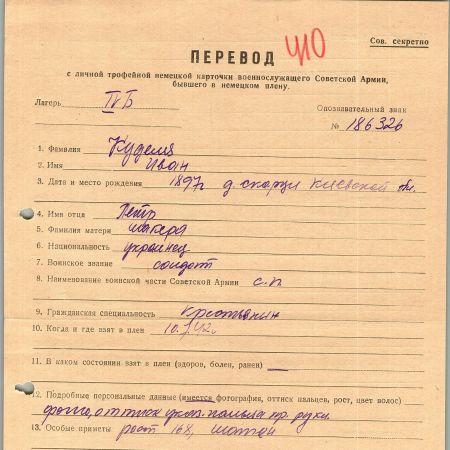 410
Сов. секретно
ПЕРЕВОД
с личной трофейной немецкой карточки военнослужащего Советской Армии,
бывшего в немецком плену.
Лагерь IVБ
Опознавательный знак
№ 186326
1. Фамилия Куделя
2. Имя Иван
3. Дата и место рождения 1897г. д. Скарци Киевской обл.
4. Имя отца Петр
5. Фамилия матери
6. Национальность украинец
7. Воинское звание солдат
8. Наименование воинской части Советской Армии с.п.
9. Гражданская специальность крестьянин
10. Когда и где взят в плен
11. В каком состоянии взят в плен (здоров, болен, ранен)
12. Подробные персональные данные (имеется фотография, оттиск пальцев, рост, цвет волос)
фото, оттиск указ. пальца пр. руки.
13. Особые приметы рост 168, шатен